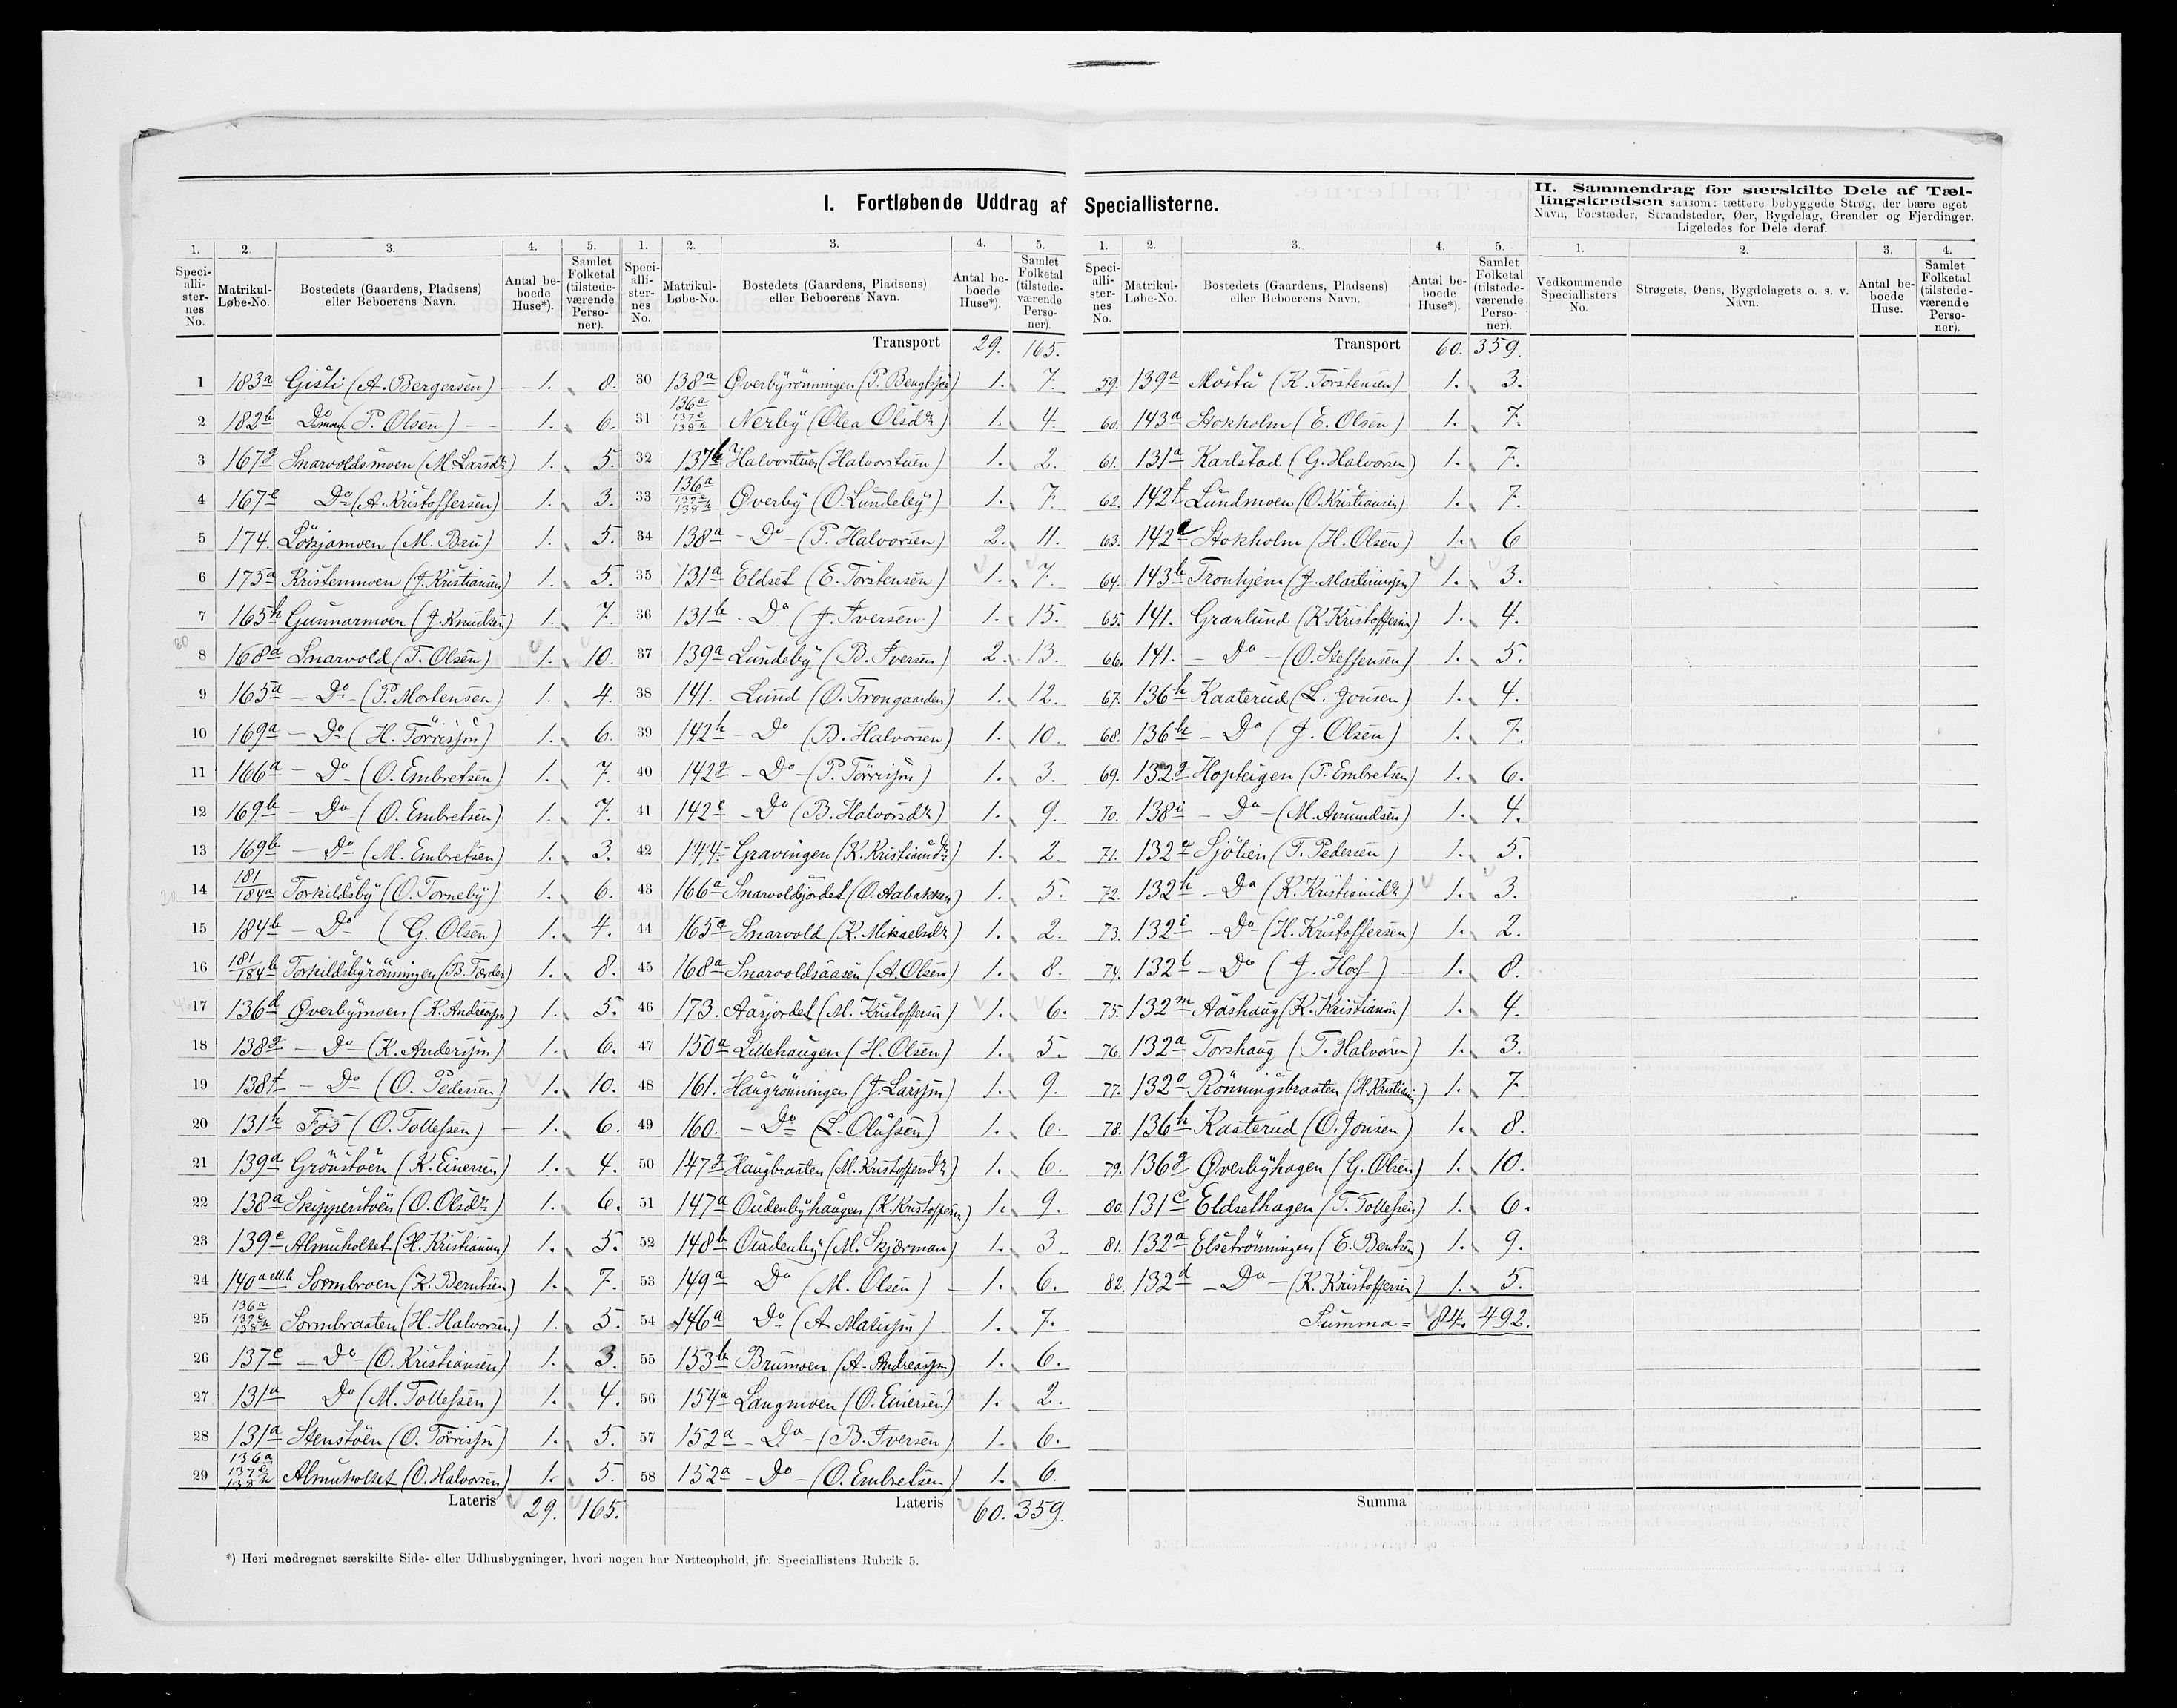 I. Fortløbende Uddrag af Speciallisterne.
II. Sammendrag for særskilte Dele af Tæl-
lingskredsen saasom: tættere bebyggede Strøg, der bære eget
Navn, Forstæder, Strandsteder, Øer, Bygdelag, Grender og Fjerdinger.
Ligeledes for Dele deraf.
1. 2. 3. 4. 5.
Speci-alli-ster-nes No. Matrikul-Løbe-No. Bostedets (Gaardens, Pladsens) eller Beboerens Navn. Antal be-boede Huse*). Samlet Folketal (tilstede-værende Perso-ner).
1 183a Gisti (A. Bergersen) 1. 8.
2 182b Do (P. Olsen) 1. 6.
3 167g Snarvoldsmoen (M. Larsdr) 1. 5.
4 167e Do (A. Kristoffersen) 1. 3.
5 174. Løkjamoen (M. Bru) 1. 5.
6 175a Kristenmoen (J. Kristiansen) 1. 5.
7 165h Gunnarmoen (J. Knudsen) 1. 7.
8 168a Snarvold (T. Olsen) 1. 10.
9 165a Do (P. Mortensen) 1. 4.
10 169a Do (H. Tørrissen) 1. 6.
11 166a Do (O. Embretsen) 1. 7.
12 169b Do (O. Embretsen) 1. 7.
13 169b Do (M. Embretsen) 1. 3.
14 181/184a Torkildsby (O. Torneby) 1. 6.
15 184b Do (G. Olsen) 1. 4.
16 181/184b Torkildsbyrønningen (B. Tørder) 1. 8.
17 136d Øverbymoen (K. Andersen) 1. 5.
18 138g Do (K. Andersen) 1. 6.
19 138f Do (O. Pedersen) 1. 10.
20 131h Fos (O. Tollefsen) 1. 6.
21 139a Grønstøen (K. Einersen) 1. 4.
22 138a Skipperstøen (O. Olsdr) 1. 6.
23 139e Almuholtet (H. Kristiansen) 1. 5.
24 140a et b Sormbroen (K. Berntsen) 1. 7.
25 136a 137e 138h Sormbraaten (H. Halvorsen) 1. 5.
26 137e Do (O. Kristiansen) 1. 3.
27 131a Do (M. Tollefsen) 1. 4.
28 131a Stenstøen (O. Tørrissen) 1. 5.
29 136a 137e 138h Almuholtet (O. Halvorsen) 1. 5.
Lateris 29. 165.
1. 2. 3. 4. 5.
Speci-alli-ster-nes No. Matrikul-Løbe-No. Bostedets (Gaardens, Pladsens) eller Beboerens Navn. Antal be-boede Huse*). Samlet Folketal (tilstede-værende Perso-ner).
Transport 29. 165.
30 138a Øverbyrønningen (P. Bengtsen) 1. 7.
31 136a 137e 138h Nerby (Olea Olsdr) 1. 4.
32 137b Halvorstuen (Halvorstuen) 1. 2.
33 136a 137e 138h Øverby (O. Lundeby) 1. 7.
34 138a Do (P. Halvorsen) 2. 11.
35 131a Eldset (E. Torstensen) 1. 7.
36 131b Do (J. Iversen) 1. 15.
37 139a Lundeby (B. Iversen) 2. 13.
38 141. Lund (O. Trongaarden) 1. 12.
39 142h Do (B. Halvorsen) 1. 10.
40 142g Do (P. Tørrissen) 1. 3.
41 142e Do (B. Halvorsdr) 1. 9.
42 144 Gravingen (K. Kristiansdr) 1. 2
43 166a Snarvoldsjordet (O. Aabakken) 1. 5.
44 165e Snarvold (K. Mikaelsdr) 1. 2.
45 168a Snarvoldsaasen (A. Olsen) 1. 8.
46 173. Aasjordet (M. Kristoffersen) 1. 6.
47 150a Lillehaugen (H. Olsen) 1. 5.
48 161. Haugrønningen (J. Larssen) 1. 9.
49 160. Do (L. Olufsen) 1. 6.
50 147g Haugbraaten (M. Kristoffersdr) 1. 6.
51 147a Oudenbyhaugen (K. Kristoffersen) 1. 9.
52 148b Oudenby (M. Skjærman) 1. 3
53 149a Do (M. Olsen) 1. 6.
54 146a Do (A. Matissen) 1. 7.
55 153b Brumoen (A. Andreassen) 1. 6.
56 154a Langmoen (O. Einersen) 1. 2.
57 152a Do (B. Iversen) 1. 6.
58 152a Do (O. Embretsen) 1. 6.
Lateris 60. 359.
1. 2. 3. 4. 5.
Speci-alli-ster-nes No. Matrikul-Løbe-No. Bostedets (Gaardens, Pladsens) eller Beboerens Navn. Antal be-boede Huse*). Samlet Folketal (tilstede-værende Perso-ner).
Transport 60. 359.
59. 139a Mostu (K. Torstensen) 1. 3.
60. 143a Stokholm (E. Olsen) 1. 7.
61. 131a Karlstad (G. Halvorsen) 1. 7.
62. 142f Lundmoen (O. Kristiansen) 1. 7.
63. 142e Stokholm (H. Olsen) 1. 6
64. 143b Tronhjem (J. Martinussen) 1. 3.
65. 141. Granlund (K. Kristoffersen) 1. 4.
66. 141. Do (O. Steffensen) 1. 5.
67. 136h Kaaterud (L. Jonsen) 1. 4.
68. 136h Do (J. Olsen) 1. 7.
69. 132g Hopteigen (P. Embretsen) 1. 6.
70. 138i Do (M. Amundsen) 1. 4.
71. 132e Sjølien (T. Pedersen) 1. 5.
72. 132h Do (K. Kristiansdr) 1. 3.
73. 132i Do (H. Kristoffersen) 1. 2.
74. 132l Do (J. Hof) 1. 8.
75. 132m Aashaug (K. Kristiansen) 1. 4.
76. 132a Torshaug (T. Halvorsen) 1. 3.
77. 132a Rønningsbraaten (H. Kristians) 1. 7
78. 136h Kaaterud (O. Jonsen) 1. 8.
79. 136g Øverbyhagen (G. Olsen) 1. 10.
80. 131c Eldsethagen (T. Tollefsen) 1. 6.
81. 132a Elsetrønningen (E. Bentsen) 1. 9.
82. 132d Do (K. Kristoffersen) 1. 5.
Summa = 84. 492.
Summa
1. 2. 3. 4.
Vedkommende Speciallisters No. Strøgets, Øens, Bygdelagets o. s. v. Navn. Antal be-boede Huse. Samlet Folketal (tilstede-værende Perso-ner).
*) Heri medregnet særskilte Side- eller Udhusbygninger, hvori nogen har Natteophold, jfr. Speciallistens Rubrik 5.